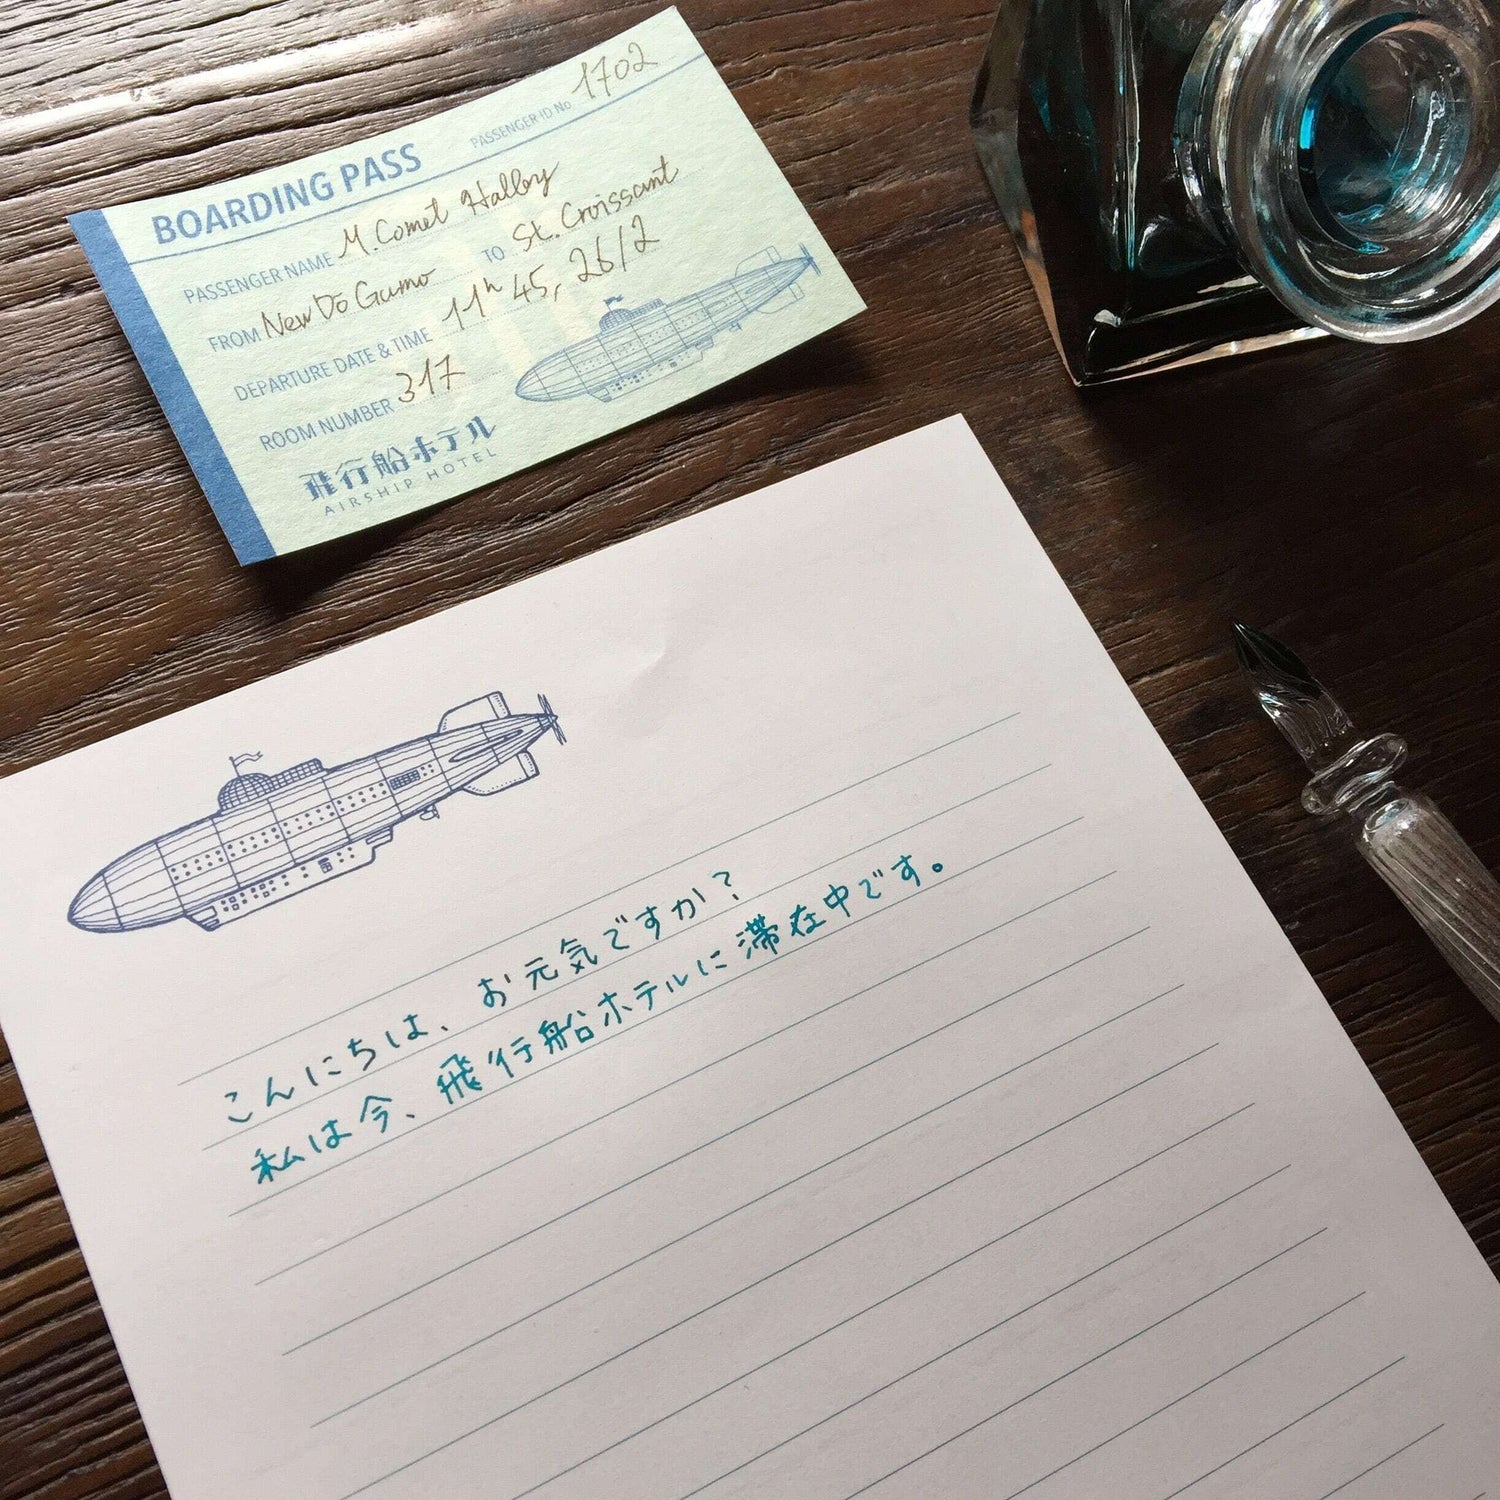 BOARDING PASS PASSENGER ID No 1702
PASSENGER NAME M. Comet Halley
FROM New Do Gumo TO St. Croissant
DEPARTURE DATE & TIME 11h 45, 26/2
ROOM NUMBER 317
飛行船ホテル
AIRSHIP HOTEL
こんにちは、お元気ですか?
私は今、飛行船ホテルに滞在中です。